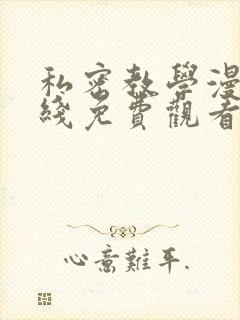 私密教學漫
綫免費觀看
心意難平.